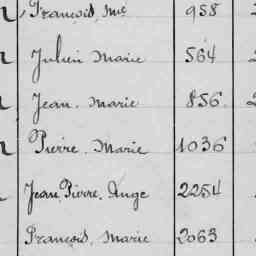 François Me 958
Julien Marie 564
Jean. Marie 856.
Pierre. Marie 1036
Jean Pierre. Ange 2254
François. Marie 2063